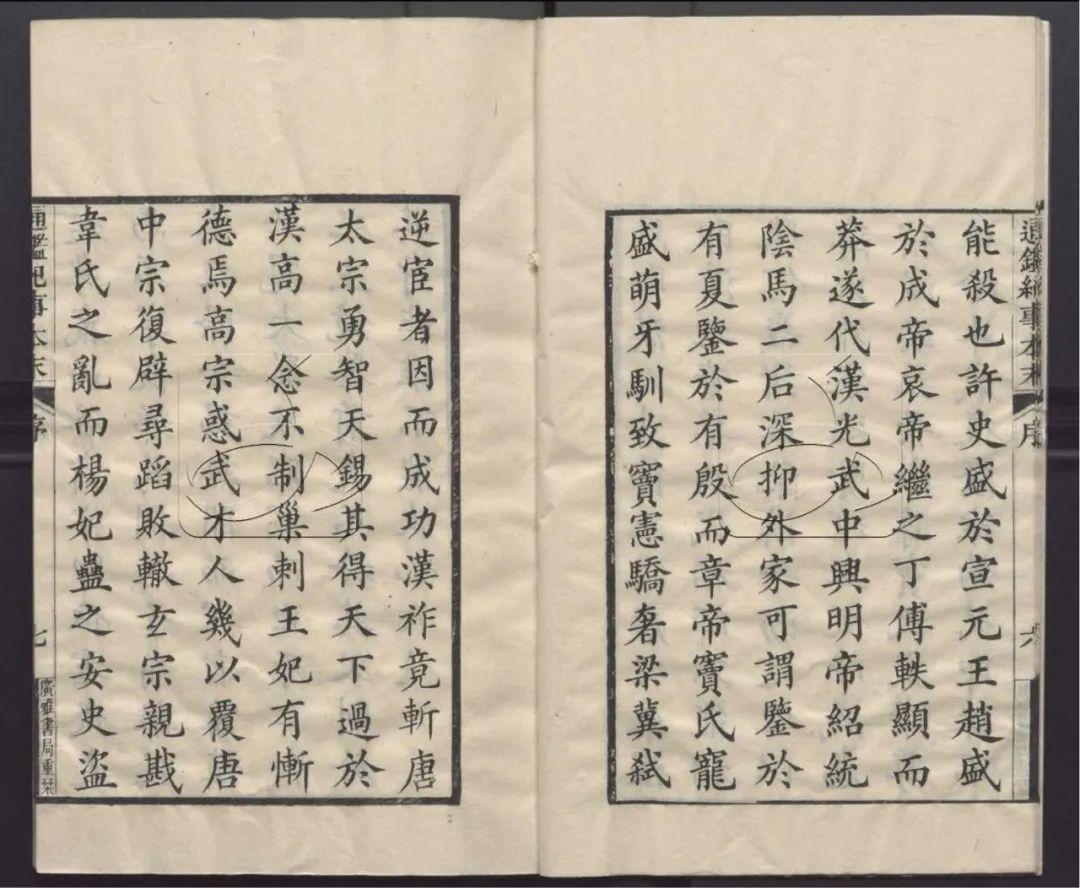 通鑑紀事本末
序
六
能殺也許史盛於宣元王趙盛
於成帝哀帝繼之丁傅軼顯而
莽遂代漢光武中興明帝紹統
陰馬二后深抑外家可謂鑒於
有夏鑒於有殷而章帝竇氏寵
盛萌牙馴致竇憲驕奢梁冀弒
逆宦者因而成功漢祚竟斬唐
太宗勇智天錫其得天下過於
漢高一念不制巢剌王妃有慚
德焉高宗惑武才人幾以覆唐
中宗復辟尋蹈敗轍玄宗親戡
韋氏之亂而楊妃蠱之安史盜
通鑑紀事本末
序
七
廣雅書局重栞